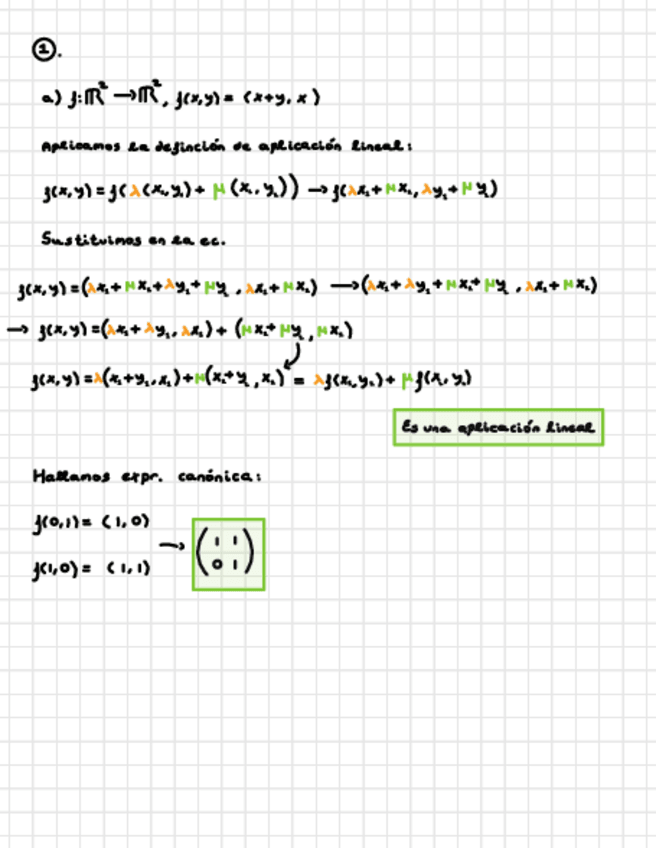 1.
a) f: ℝ² → ℝ², f(x,y) = (x+y, x)
Aplicamos la definción de aplicación lineal:
f(x,y) = f(λ(x₁,y₁) + μ(x₂,y₂)) → f(λx₁ + μx₂, λy₁ + μy₂)
Sustituimos en la ec.
f(x,y) = (λx₁ + μx₂ + λy₁ + μy₂, λx₁ + μx₂) → (λx₁ + λy₁ + μx₂ + μy₂, λx₁ + μx₂)
→ f(x,y) = (λx₁ + λy₁, λx₁) + (μx₂ + μy₂, μx₂)
f(x,y) = λ(x₁+y₁, x₁) + μ(x₂+y₂, x₂) = λf(x₁,y₁) + μf(x₂,y₂)
Es una aplicación lineal
Hallamos expr. canónica:
f(0,1) = (1,0)
f(1,0) = (1,1)
→ (1 1
0 1)